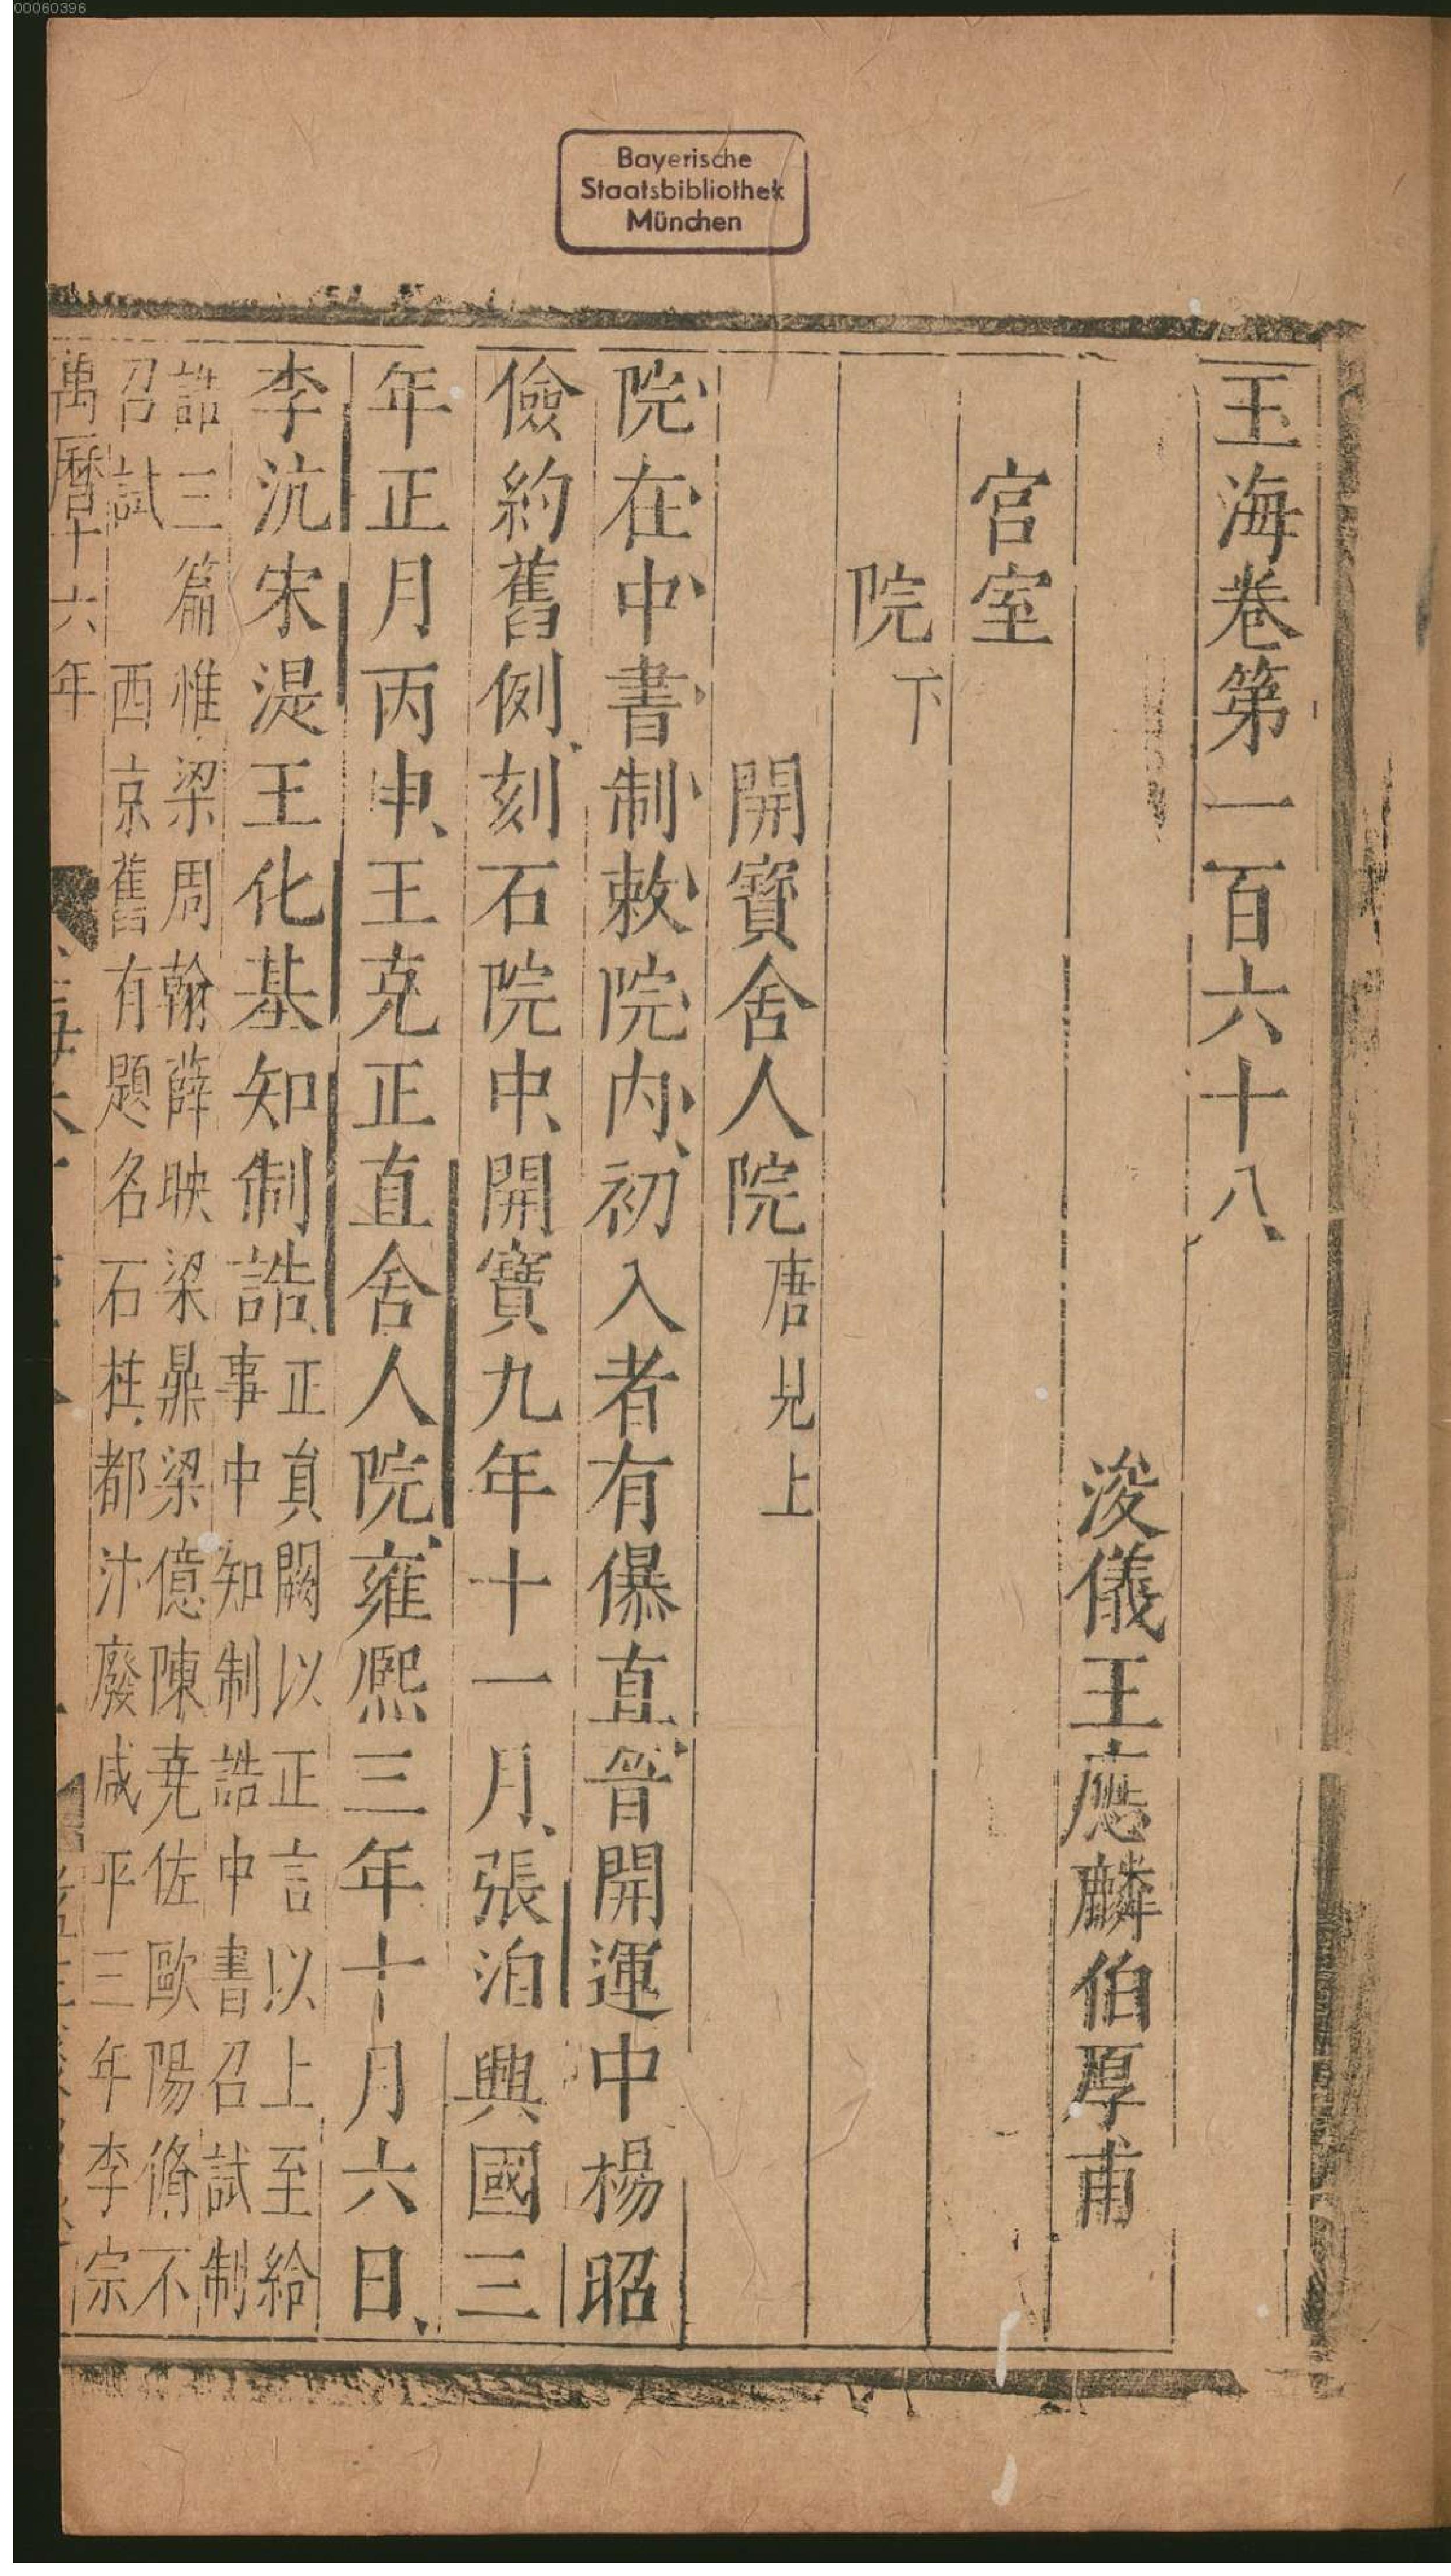 00060396
Bayerische
Staatsbibliothek
München
玉海卷第一百六十八
浚儀王應麟伯厚甫
宮室
院下
開寶舍人院唐見上
院在中書制敕院內初入者有儤直晉開運中楊昭
儉約舊例刻石院中開寶九年十一月張洎興國三
年正月丙申王克正直舍人院雍熙三年十月六日
李沆宋湜王化基知制誥
正員闕以正言以上至給
事中知制誥中書召試制
誥三篇惟梁周翰薛映梁鼎梁億陳堯佐歐陽脩不
召試 西京舊有題名石柱都汴廢咸平三年李宗
萬曆十六年